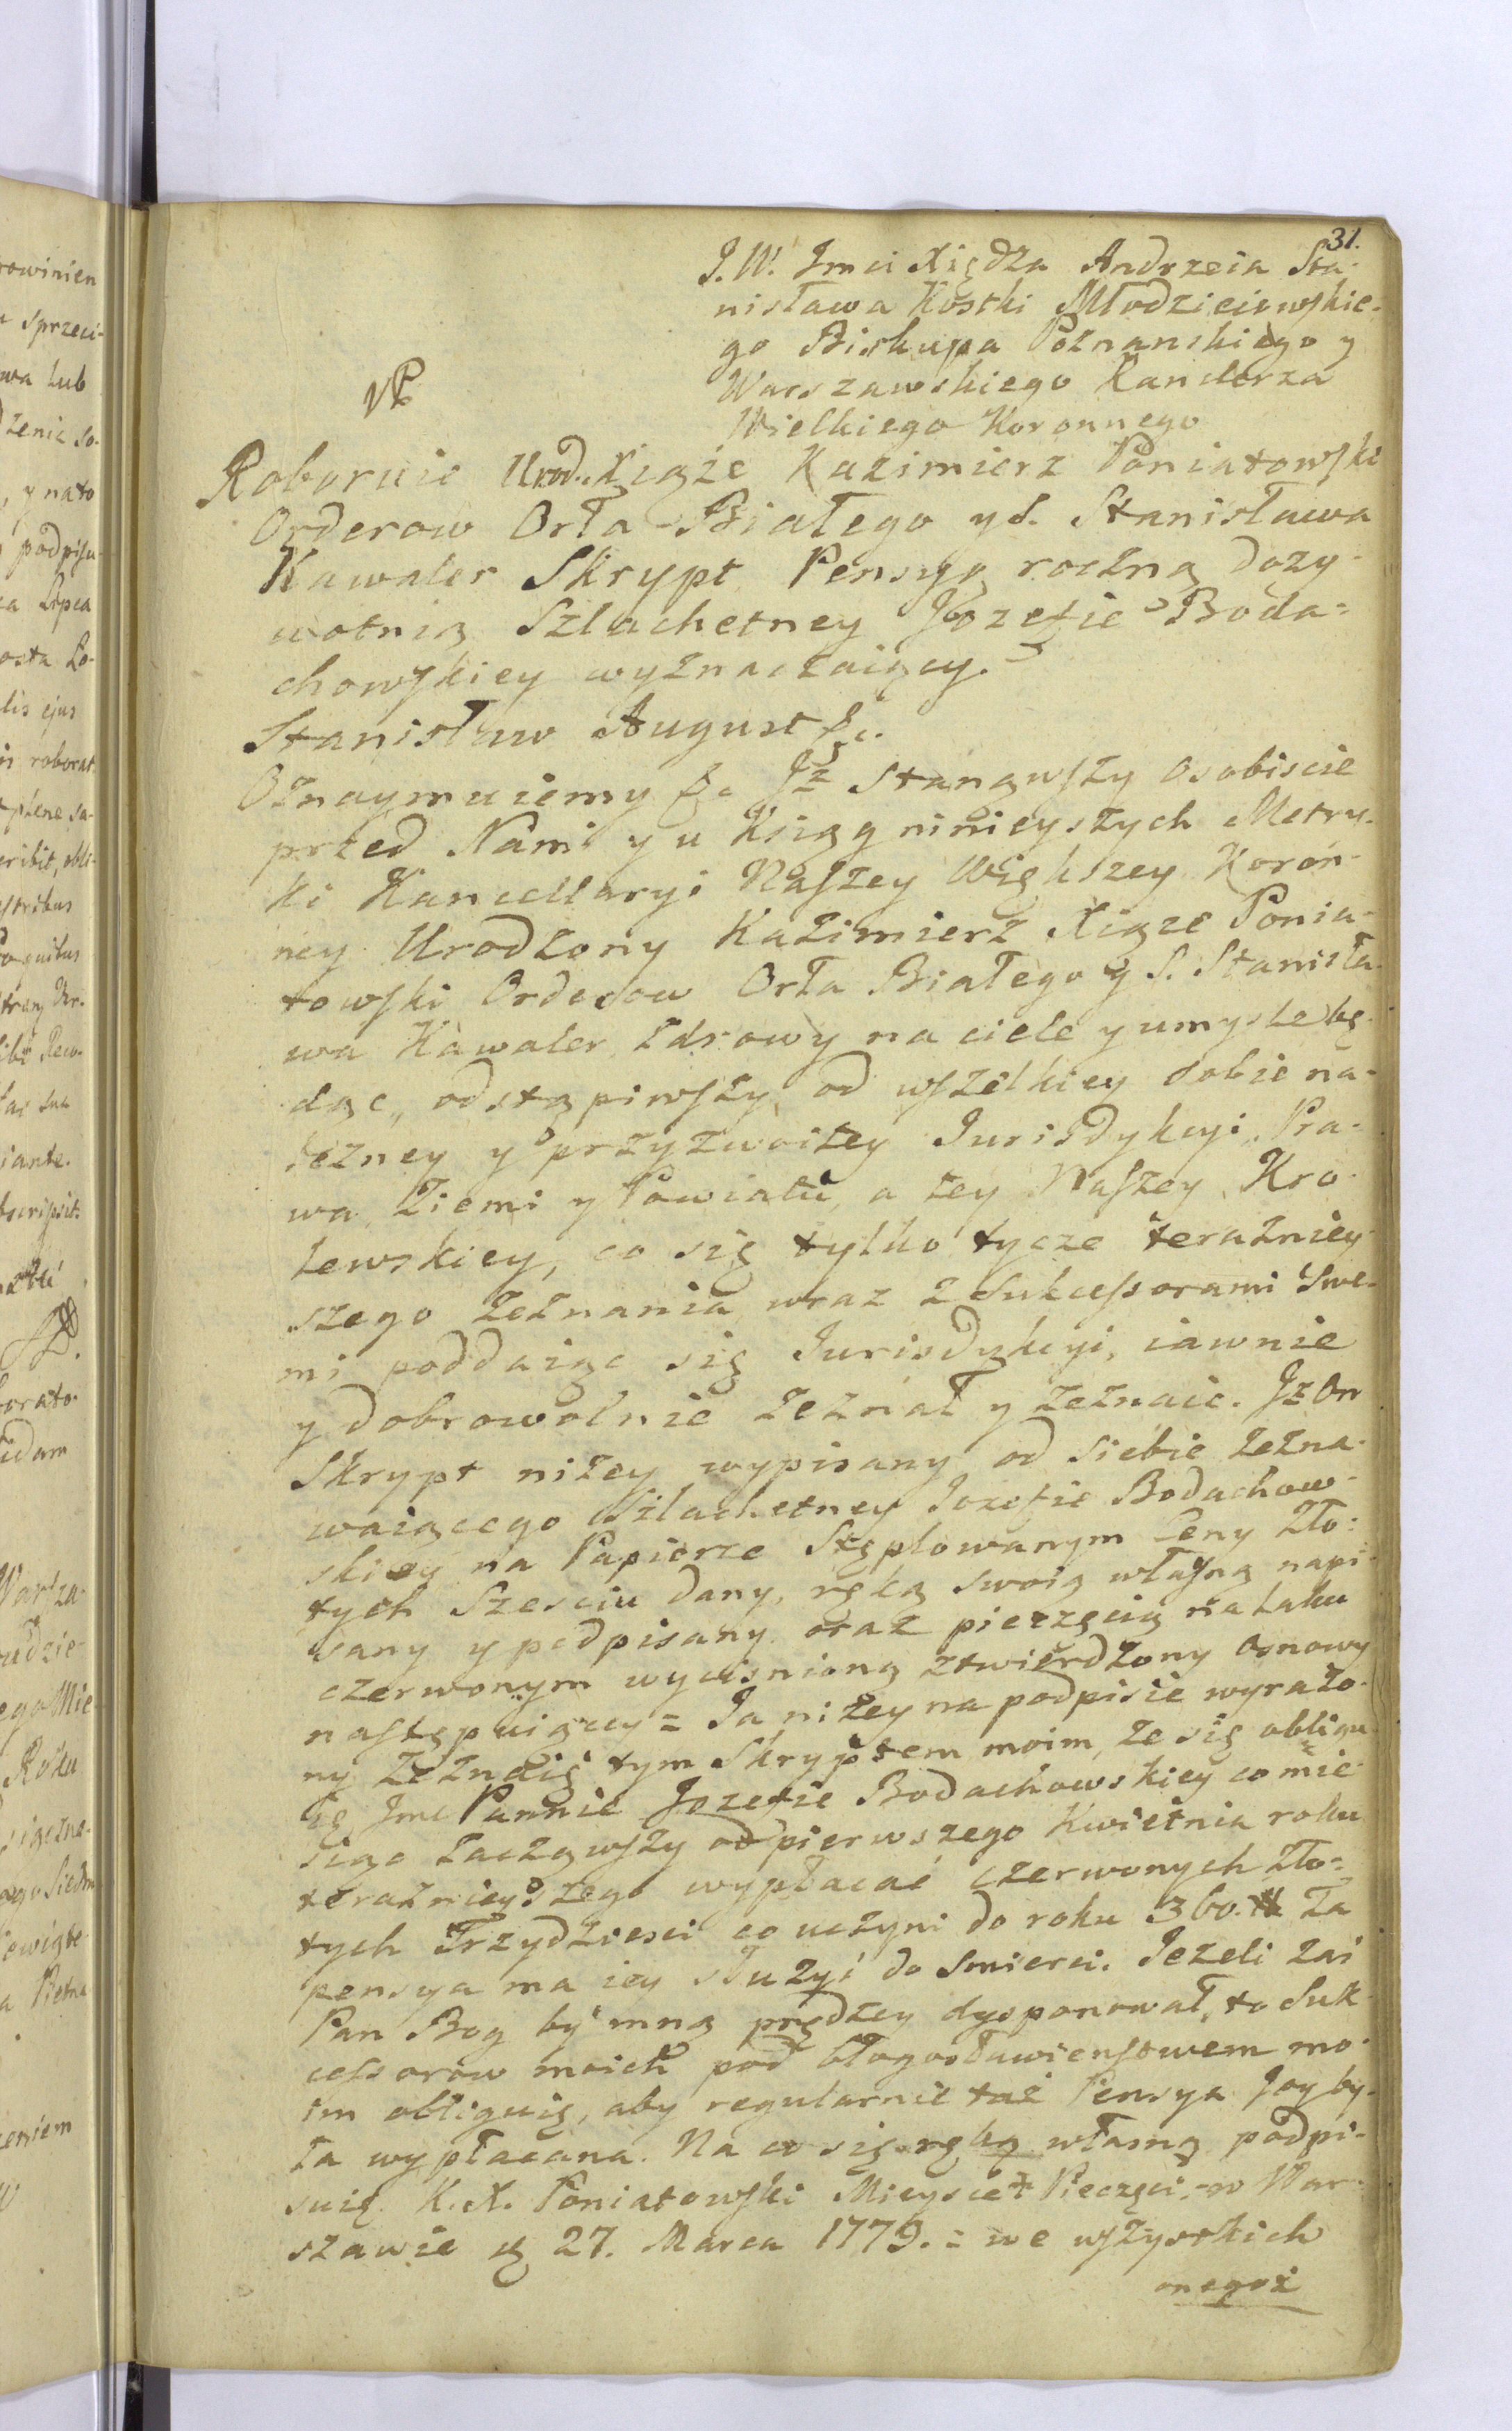 31.
J.W. Jmci Xiędza Andrzeia Sta-
nisława Kostki Młodzieiowskie-
go Biskupa Poznanskiego y
Warszawskiego Kanclerza
Wielkiego Koronnego
Roboruie Urod. Xiąże Kazimierz Poniatowski
Orderow Orła Białego y S. Stanisława
Kawaler Skrypt Pensyą roczną dozy-
wotnią Szlachetney Jozefie Boda=
chowskiey wyznaczaiący.
Stanisław August &c.
Oznaymuiemy &c Jz Stanąwszy osobiscie
przed Nami y u Ksiąg ninieyszych Metry-
ki Kancellaryi Naszey Większey Koron-
ney Urodzony Kazimierz Xiąze Ponia-
towski Orderow Orła Białego y S. Stanisła-
wa Kawaler zdrowy na ciele y umysle bę-
dąc, odstąpiwszy od wszelkiey sobie na-
lezney y przyzwoitey Jurisdykcyi, Pra-
wa, Ziemi y Powiatu, a tey Naszey Kro-
lewskiey, co się tylko tycze terazniey-
szego zeznania wraz z Sukcessorami Swe-
mi poddaiąc się Jurisdykcyi, iawnie
y dobrowolnie zeznał y zeznaie. Jz On
Skrypt niżey wypisany od siebie zezna-
waiącego Szlachetney Jozefie Bodachow-
skiey na Papierze Stęplowanym Ceny Zło-
tych Szesciu dany, ręką swoią własną napi-
sany y podpisany oraz pieczęcią na laku
czerwonym wycisnioną ztwierdzony osnowy
następuiącey = Ja niżey na podpisie wyrazo-
ny zeznaię tym Skryptem moim, ze się obligu-
ię Jmc Pannie Jozefie Bodachowskiey co mie-
siąc zacząwszy od pierwszego Kwietnia roku
teraznieyszego wypłacać czerwonych zło=
tych Trzydziesci co uczyni do roku 360. # Ta
pensya ma iey służyć do smierci. Jezeli zaś
Pan Bog by mną prędzey dysponował, to Suk-
cessorow moich pod błogosławienstwem mo-
im obliguię, aby regularnie taż Pensya Jey by-
ła wypłacana. Na co się ręką własną podpi-
suię. K. X. Poniatowski Mieysce Pieczęci, w War-
szawie d 27. Marca 1779. = we wszystkich
onegoż